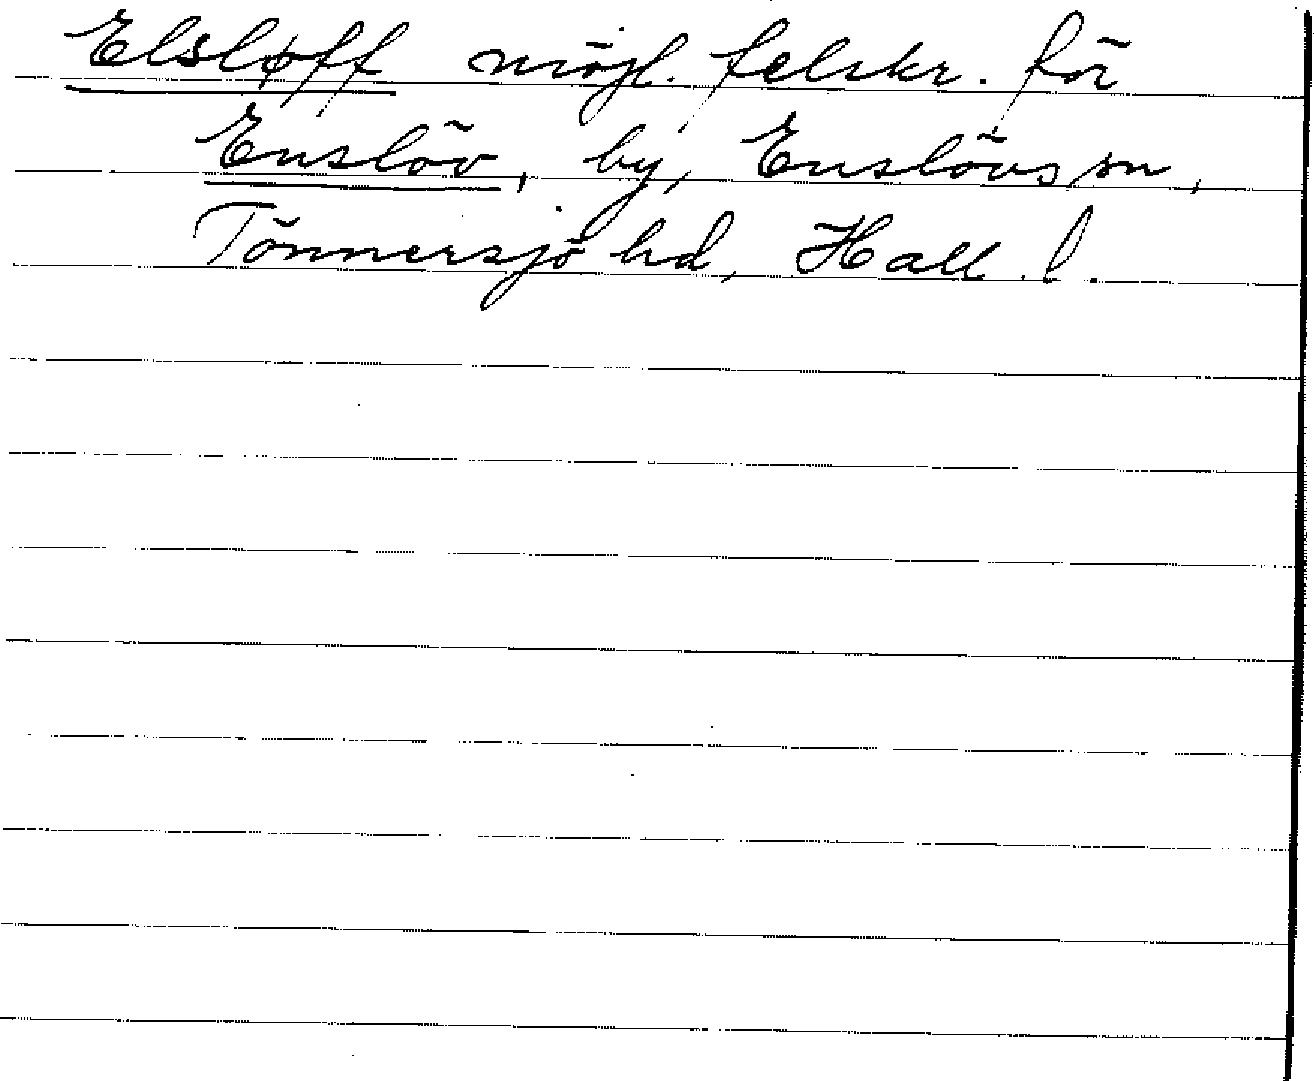 Elsløff möjl. felskr. för
Enslöv, by, Enslövs sn,
Tönnersjö hd, Hall. l.